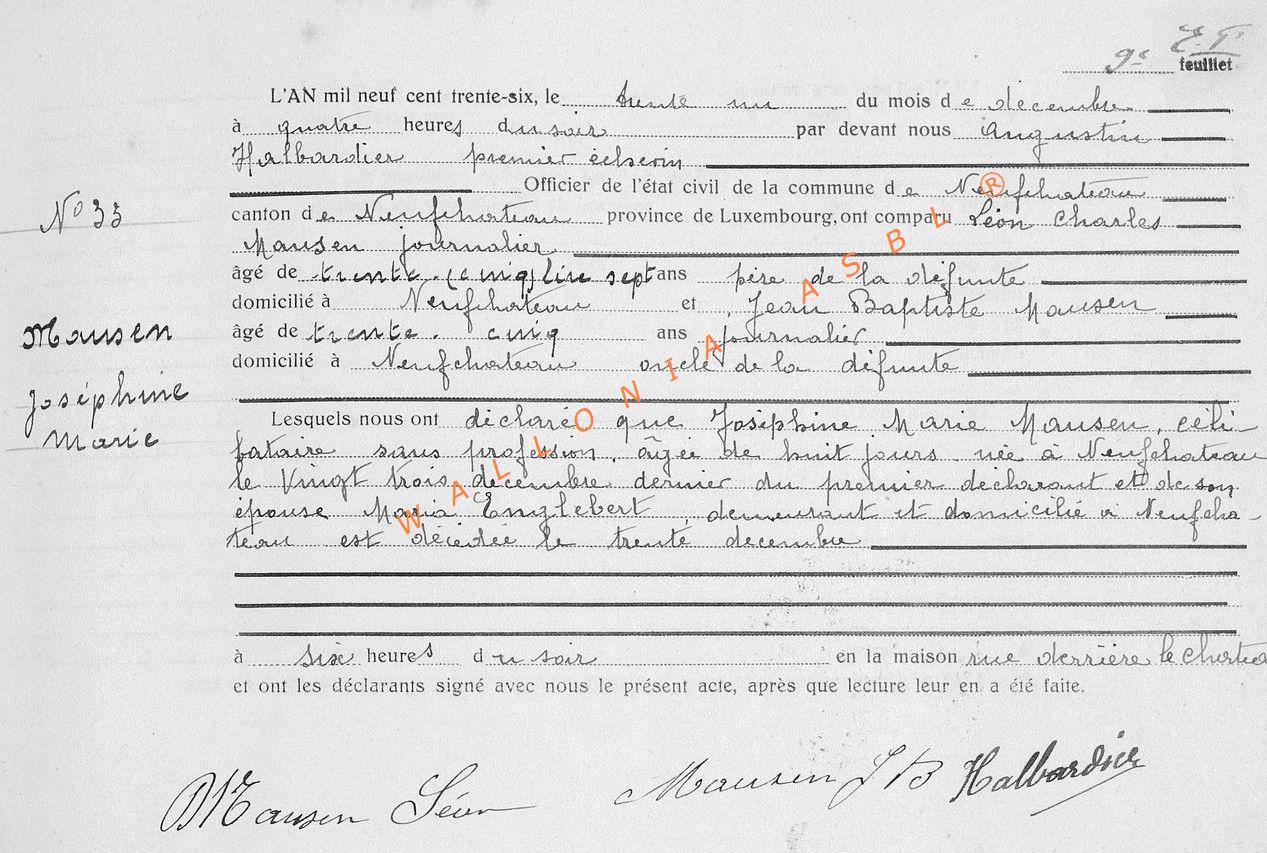 E.T.
9e feuillet
L'AN mil neuf cent trente-six, le trente un du mois de décembre
à quatre heures du soir par devant nous Augustin
Halbardier premier échevin
Officier de l'état civil de la commune de Neufchateau
N° 33
canton de Neufchateau province de Luxembourg, ont comparu Léon Charles
Mausen journalier
âgé de trente sept ans père de la défunte
domicilié à Neufchateau et Jean Baptiste Mausen
Mausen
âgé de trente. cinq ans journalier
domicilié à Neufchateau oncle de la défunte
Joséphine
Marie
Lesquels nous ont déclaré que Joséphine Marie Mausen, céli-
bataire sans profession, âgée de huit jours née à Neufchateau
le Vingt trois décembre dernier du premier déclarant et de son
épouse Maria Englebert, demeurant et domicilié à Neufcha-
teau est décédée le trente décembre
à six heures du soir en la maison rue derrière le chatea
et ont les déclarants signé avec nous le présent acte, après que lecture leur en a été faite.
Mausen Léon Mausen J B Halbardier
WALLONIA ASBL ®